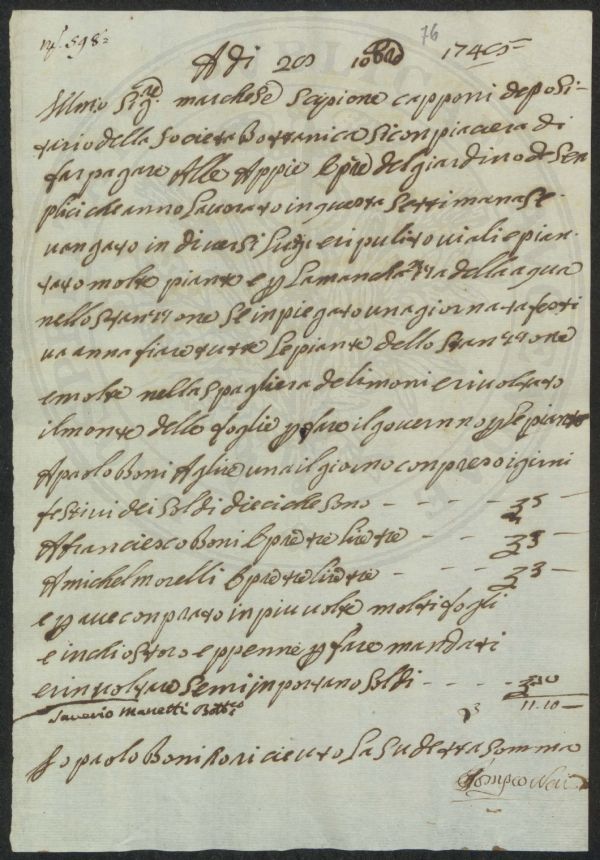 n.° 598
76
A di 20 10bre 1746
Illmo Sigre marchese Scipione capponi deposi-
tario della Societa Bottanica Si conpiacera di
far pagare Alle Appie Opre del giardino de Sen
plici che anno Lavorato in questa Settimana Se
vangato in diversi Lugi e ripulito viali e pian-
tato molte piante e p La mancha za della aqua
nello stanzone Se inpiegato una giornata festi
va annafiare tutte Le piante dello Stanzone
e molte nella Spagliera de limoni e rivoltato
il monte delle foglie p fare il governo p Le piante
A paolo Boni A lire una il giorno conpreso i giorni
festivi dei Soldi dieci che sono - - - - 5
A franciesco Boni Opre tre lire tre - - - 3
A michel morelli Opre tre lire tre - - - 3
e p ave conprato in piu volte molti fogli
e inchiostoro e ppenne p fare mandati
e rinvoltare Semi inportano Soldi - - - - 10
Saverio Manetti Bottco 11.10 —
Io paolo Boni ho ricieuto La Sudetta Somma